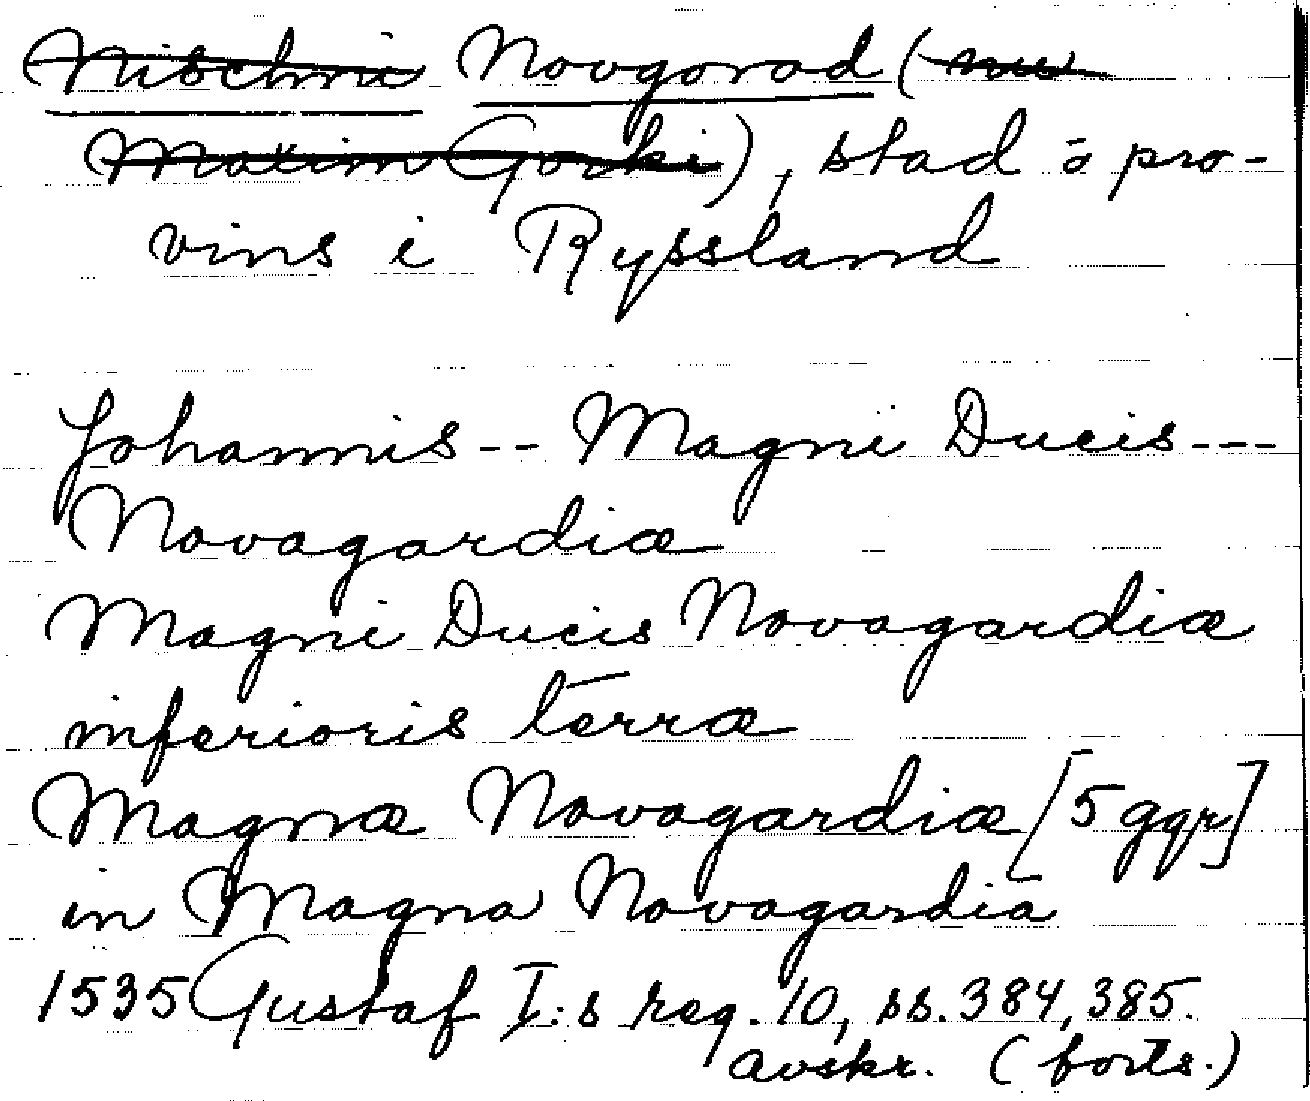 Nischni Novgorod (nu
Maxim Gorki), stad o pro-
vins i Ryssland
Johannis -- Magni Ducis ---
Novagardiæ
Magni Ducis Novagardiæ
inferioris terræ
Magnæ Novagardiæ [5 ggr]
in Magna Novagardia
1535 Gustaf I:s reg. 10, ss. 384, 385.
avskr. (forts.)